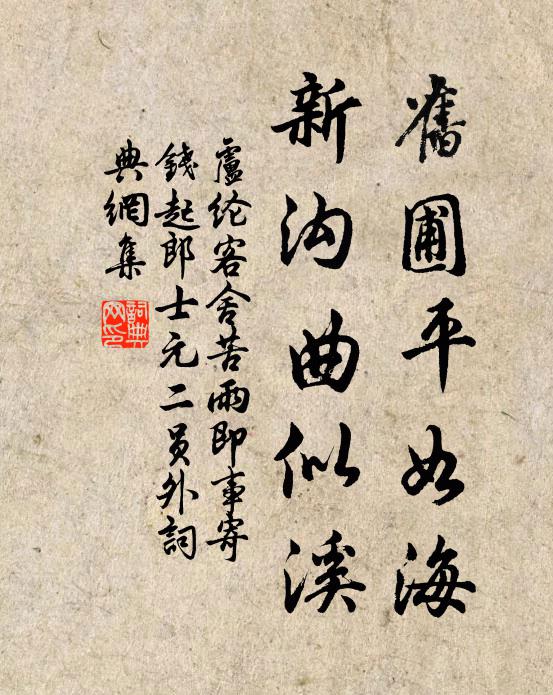 舊圃平如海
新沟曲似溪
盧纶客舍苦雨即事寄
錢起郎士元二员外詞
典網集
詞典
网印